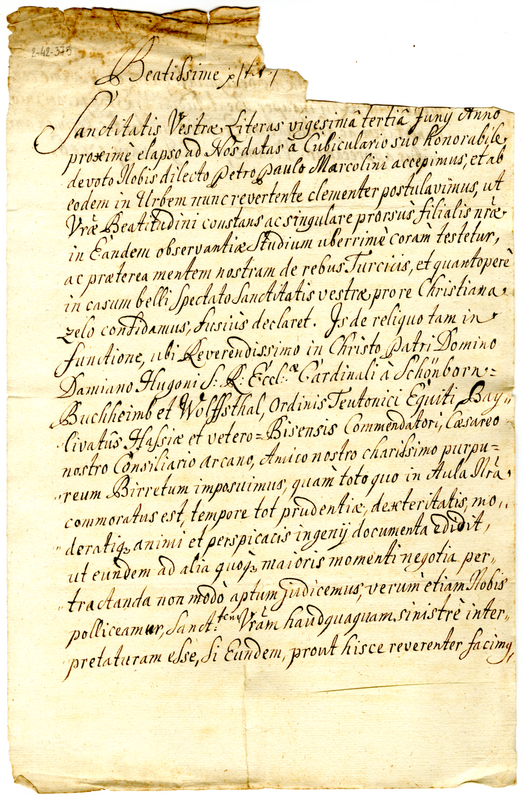 2-42-375
Beatissime p
Sanctitatis Vestræ Literas vigesimâ tertiâ Juny Anno
proximè elapso ad Nos datas à Cubiculario suo honorabile
devoto Nobis dilecto Petro Paulo Marcolini accepimus, et ab
eodem in Urbem nunc revertente clementer postulavimus, ut
Vræ Beatitudini constans ac singulare prorsus, filialis nræ
in Eandem observantiæ Studium uberrimè coram testetur,
ac præterea mentem nostram de rebus Turcicis, et quantoperè
in casum belli Spectato Sanctitatis vestræ pro re Christiana
zelo confidamus, fusius declaret. Js de reliquo tam in
functione, ubi Reverendissimo in Christo Patri Domino
Damiano Hugoni S. R. Eccl.æ Cardinali à Schönborn=
Buchheimb et Wolffsthal, Ordinis Teutonici Equiti, Bay„
livatus Hassiæ et vetero=Bisensis Commendatori, Cæsareo
nostro Consiliario arcano, Amico nostro charissimo purpu=
reum Birretum imposuimus, quam toto quo in Aula Nrâ
commoratus est, tempore tot prudentiæ, dexteritatis, mo„
deratiq animi et perspicacis ingenij documenta edidit,
ut eundem ad alia quoq maioris momenti negotia per„
tractanda non modò aptum judicemus, verùm etiam Nobis
polliceamur, Sanct:tem Vrâm haudquaquam sinistrè inter„
pretaturam esse, si Eundem, prout hisce reverenter facimq,